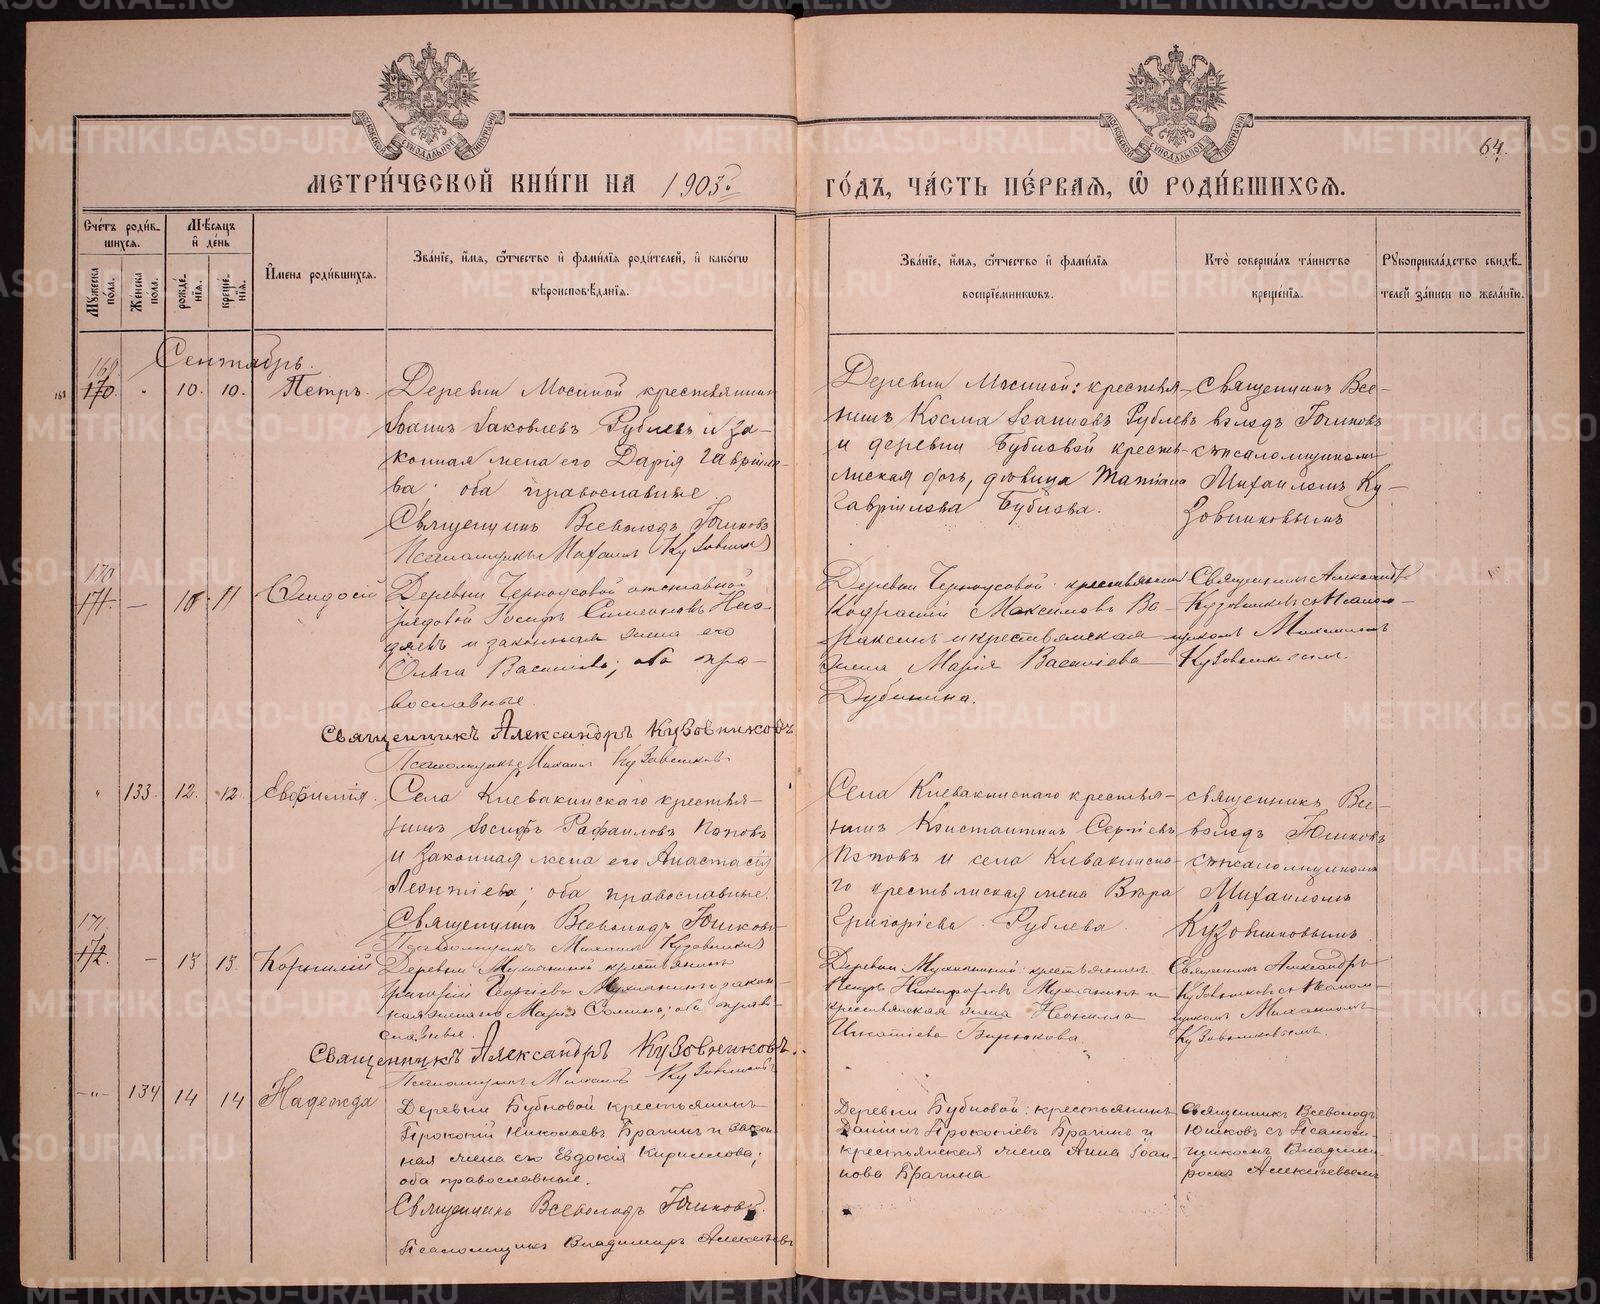 МЕТРИ́ЧЕСКОЙ КНИ́ГИ НА 1903й ГО́ДЪ, ЧА́СТЬ ПЕ́РВАЯ, Ѽ РОДИ́ВШИХСЯ.
64.
Сче́тъ роди́в-
шихся.
Му́жеска по́ла.
Же́нска по́ла.
Мѣ́сяцъ и де́нь
рожде́-
нїя.
креще́-
нїя.
И́мена роди́вшихся.
Зва́нїе, и́мя, ѻ́тчество и фами́лїя роди́телей, и како́гѡ
вѣроисповѣ́данїя.
Зва́нїе, и́мя, ѻ́тчество и фами́лїя
воспрїе́мникѡвъ.
Кто̀ соверша́лъ та́инство
креще́нїя.
Рукоприкла́дство свидѣ́-
телей за́писи по жела́нїю.
Сентябрь.
169
170. " 10. 10. Петръ.
Деревни Мосиной крестьянинъ
Іоаннъ Іаковлевъ Рублевъ и за-
конная жена его Дарія Гавріило-
ва; оба православные.
Священникъ Всеволодъ Юшковъ
Псаломщикъ Михаилъ Кузовниковъ
Деревни Мосиной: крестья-
нинъ Косма Іоанновъ Рублевъ
и деревни Бубновой кресть-
янская дочь, дѣвица Татіана
Гавріилова Бубнова.
Священникъ Все-
володъ Юшковъ
съ псаломщикомъ
Михаиломъ Ку-
зовниковымъ
170
171. — 10. 11 Ѳеодосій
Деревни Черноусовой отставной
рядовой Іосифъ Симеоновъ
и законная жена его
Ольга Васильева; оба пра-
вославные.
Священникъ Александръ Кузовниковъ
Псаломщикъ Михаилъ Кузовниковъ
Деревни Черноусовой крестьянинъ
Кодратій Максимовъ
и крестьянская
жена Марія Васильева
Дубинина.
Священникъ Александръ
Кузовниковъ съ псалом-
щикомъ Михаиломъ
Кузовниковымъ.
" 133. 12. 12. Евфимія.
Села Кисвакинскаго крестья-
нинъ Іосифъ Рафаиловъ Поповъ
и законная жена его Анастасія
Леонтіева; оба православные.
Священникъ Всеволодъ Юшковъ
Псаломщикъ Михаилъ Кузовниковъ
Села Кисвакинскаго крестья-
нинъ Константинъ Сергіевъ
Поповъ и села Кивакинска-
го крестьянская жена Вѣра
Григоріева Рублева.
священникъ Все-
володъ Юшковъ
съ псаломщикомъ
Михаиломъ
Кузовниковымъ.
171
172. — 13 13. Корнилій
Деревни Мухлыниной крестьянинъ
Григорій Георгіевъ Мухлынинъ и закон-
ная жена его Марія; оба право-
славные.
Священникъ Александръ Кузовниковъ.
Псаломщикъ Михаилъ Кузовниковъ
Деревни Мухлыниной: крестьянинъ
Петръ Никифоровъ Мухлынинъ и
крестьянская жена Неонилла
Игнатіева Бирюкова.
Священникъ Александръ
Кузовниковъ съ псалом-
щикомъ Михаиломъ
Кузовниковымъ.
—"— 134 14 14 Надежда
Деревни Бубновой крестьянинъ
Прокопій Николаевъ Брагинъ и закон-
ная жена его Евдокія Кириллова;
оба православные.
Священникъ Всеволодъ Юшковъ.
Псаломщикъ Владимиръ Алексѣевъ
Деревни Бубновой: крестьянинъ
Даніилъ Прокопіевъ Брагинъ и
крестьянская жена Анна Іоан-
нова Брагина
Священникъ Всеволодъ
Юшковъ съ псалом-
щикомъ Владими-
ромъ Алексѣевымъ
METRIKI.GASO-URAL.RU